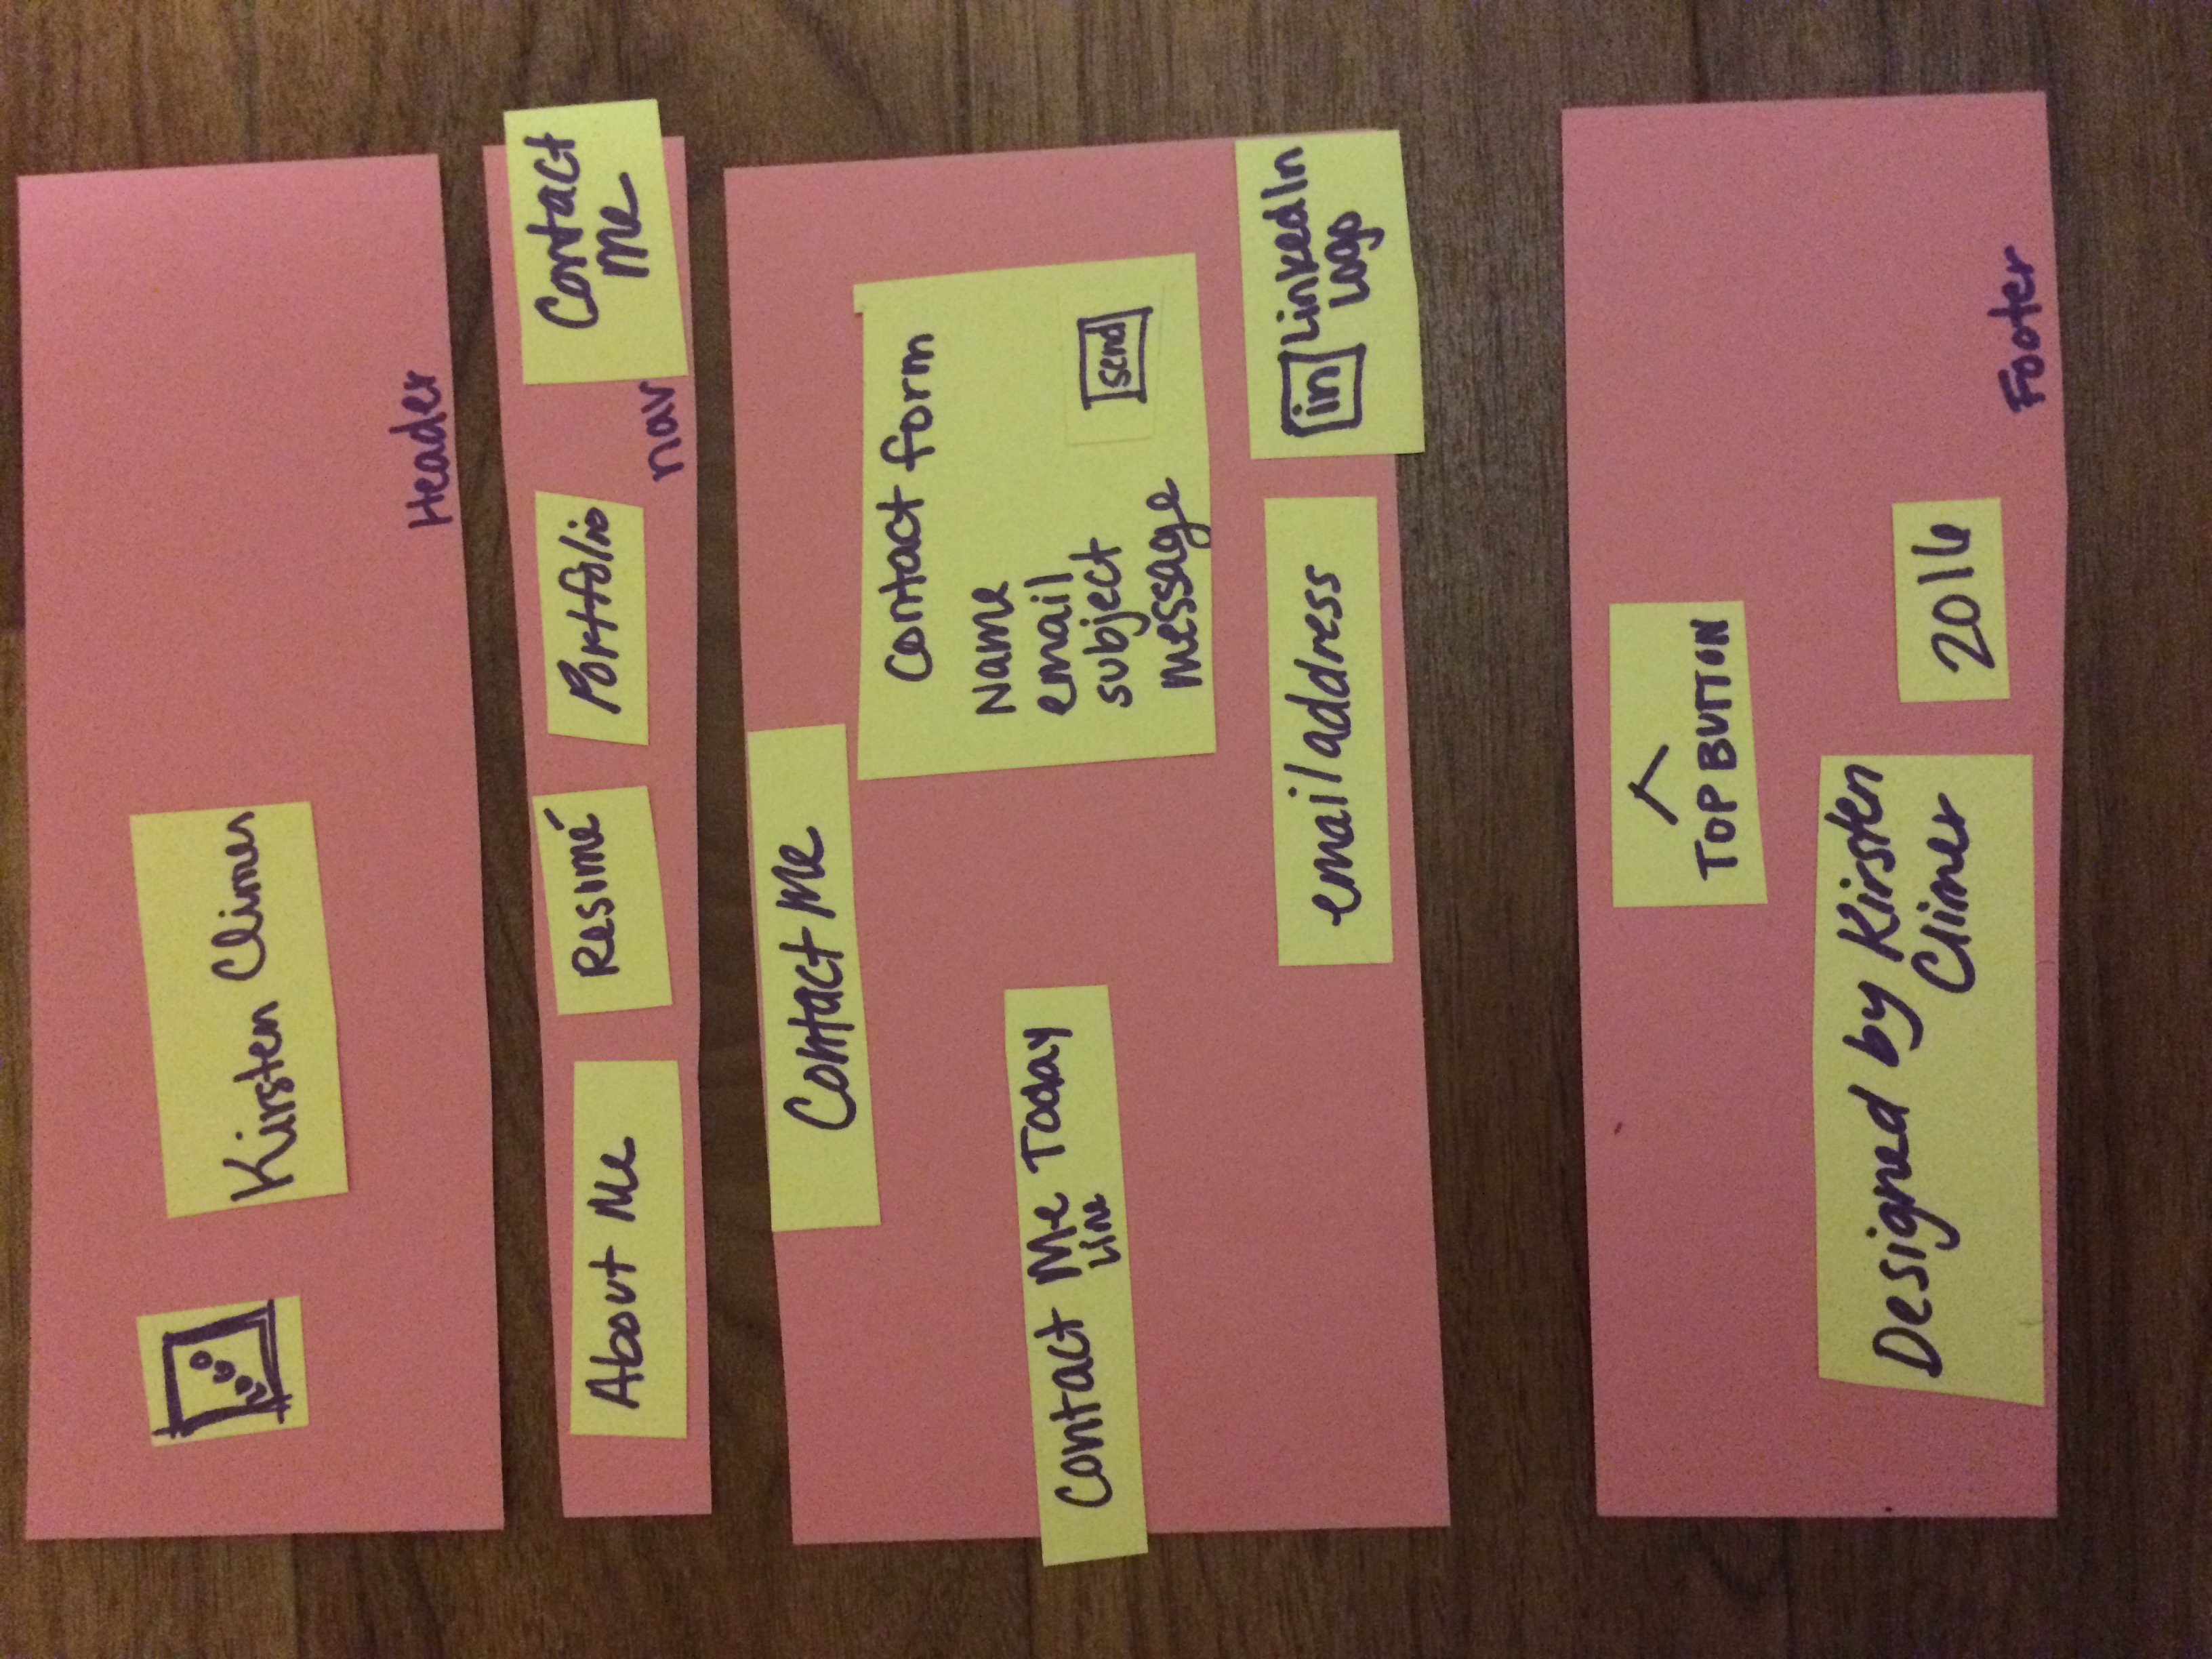 LOGO
Kirsten Climer
Header
About Me
Resumé
Portfolio
Contact
Me
nav
Contact Me
Contact Me Today
Line
Contact form
Name
email
subject
message
send
email address
in LinkedIn
Logo
TOP BUTTON
Designed by Kirsten
Climer
2016
Footer